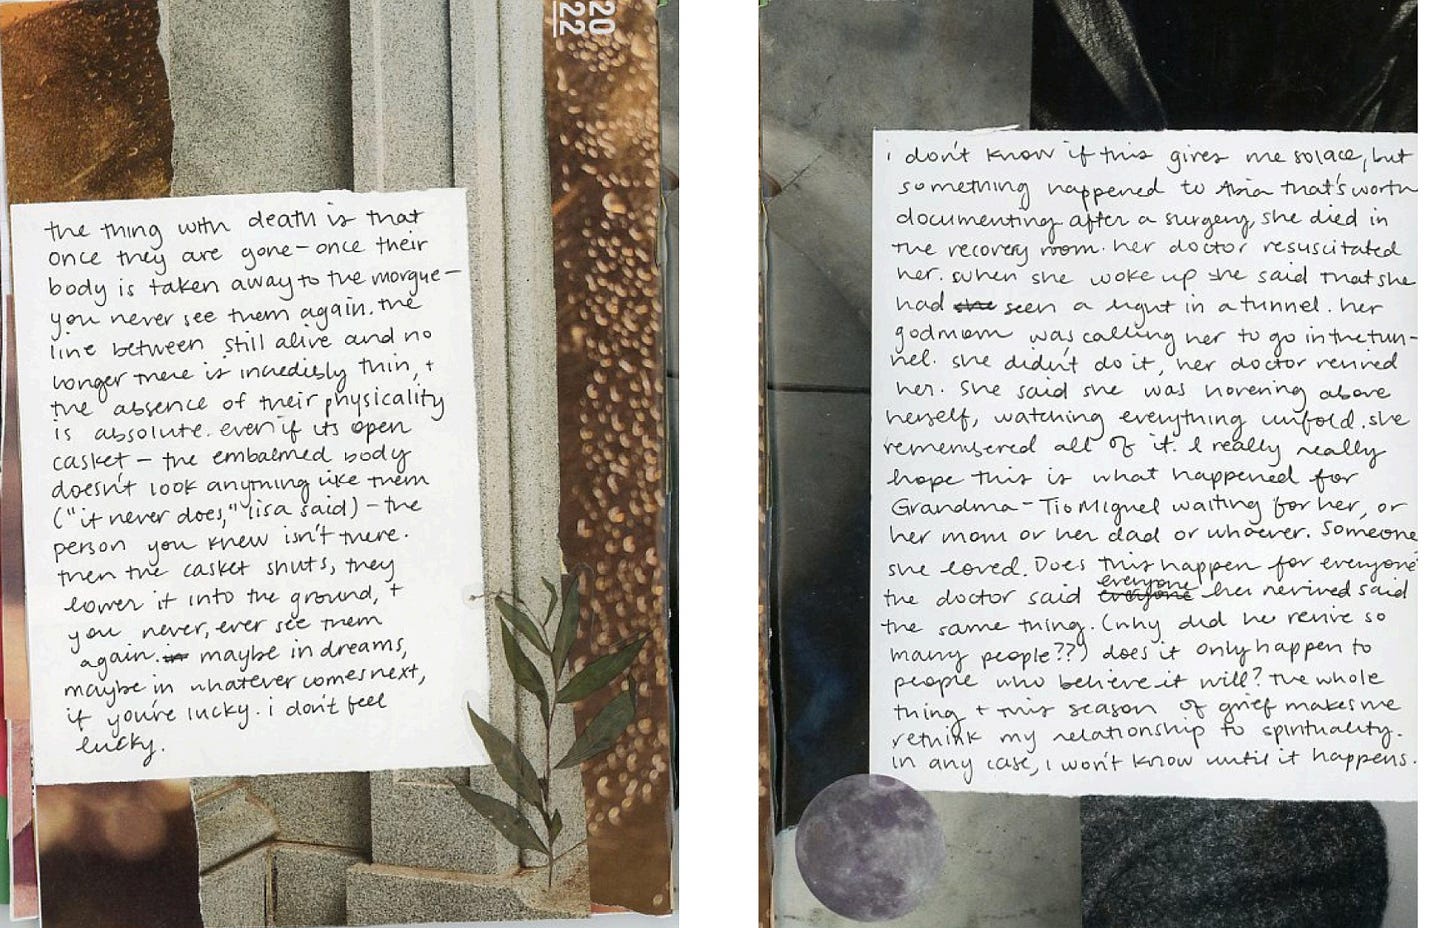 2022
the thing with death is that
once they are gone – once their
body is taken away to the morgue –
you never see them again. the
line between still alive and no
longer there is incredibly thin, +
the absence of their physicality
is absolute. even if its open
casket – the embalmed body
doesn't look anything like them
("it never does," lisa said) – the
person you knew isn't there.
then the casket shuts, they
lower it into the ground, +
you never, ever see them
again. maybe in dreams,
maybe in whatever comes next,
if you're lucky. i don't feel
lucky.
i don't know if this gives me solace, but
something happened to Asia that's worth
documenting after a surgery, she died in
the recovery room. her doctor resuscitated
her. when she woke up she said that she
had she seen a light in a tunnel. her
godmom was calling her to go in the tun-
nel. she didn't do it, her doctor revived
her. She said she was hovering above
herself, watching everything unfold. she
remembered all of it. I really really
hope this is what happened for
Grandma – Tio Miguel waiting for her, or
her mom or her dad or whoever. Someone
she loved. Does this happen for everyone?
the doctor said everyone everyone he revived said
the same thing. (why did he revive so
many people??) does it only happen to
people who believe it will? The whole
thing + this season of grief makes me
rethink my relationship to spirituality.
in any case, i won't know until it happens.